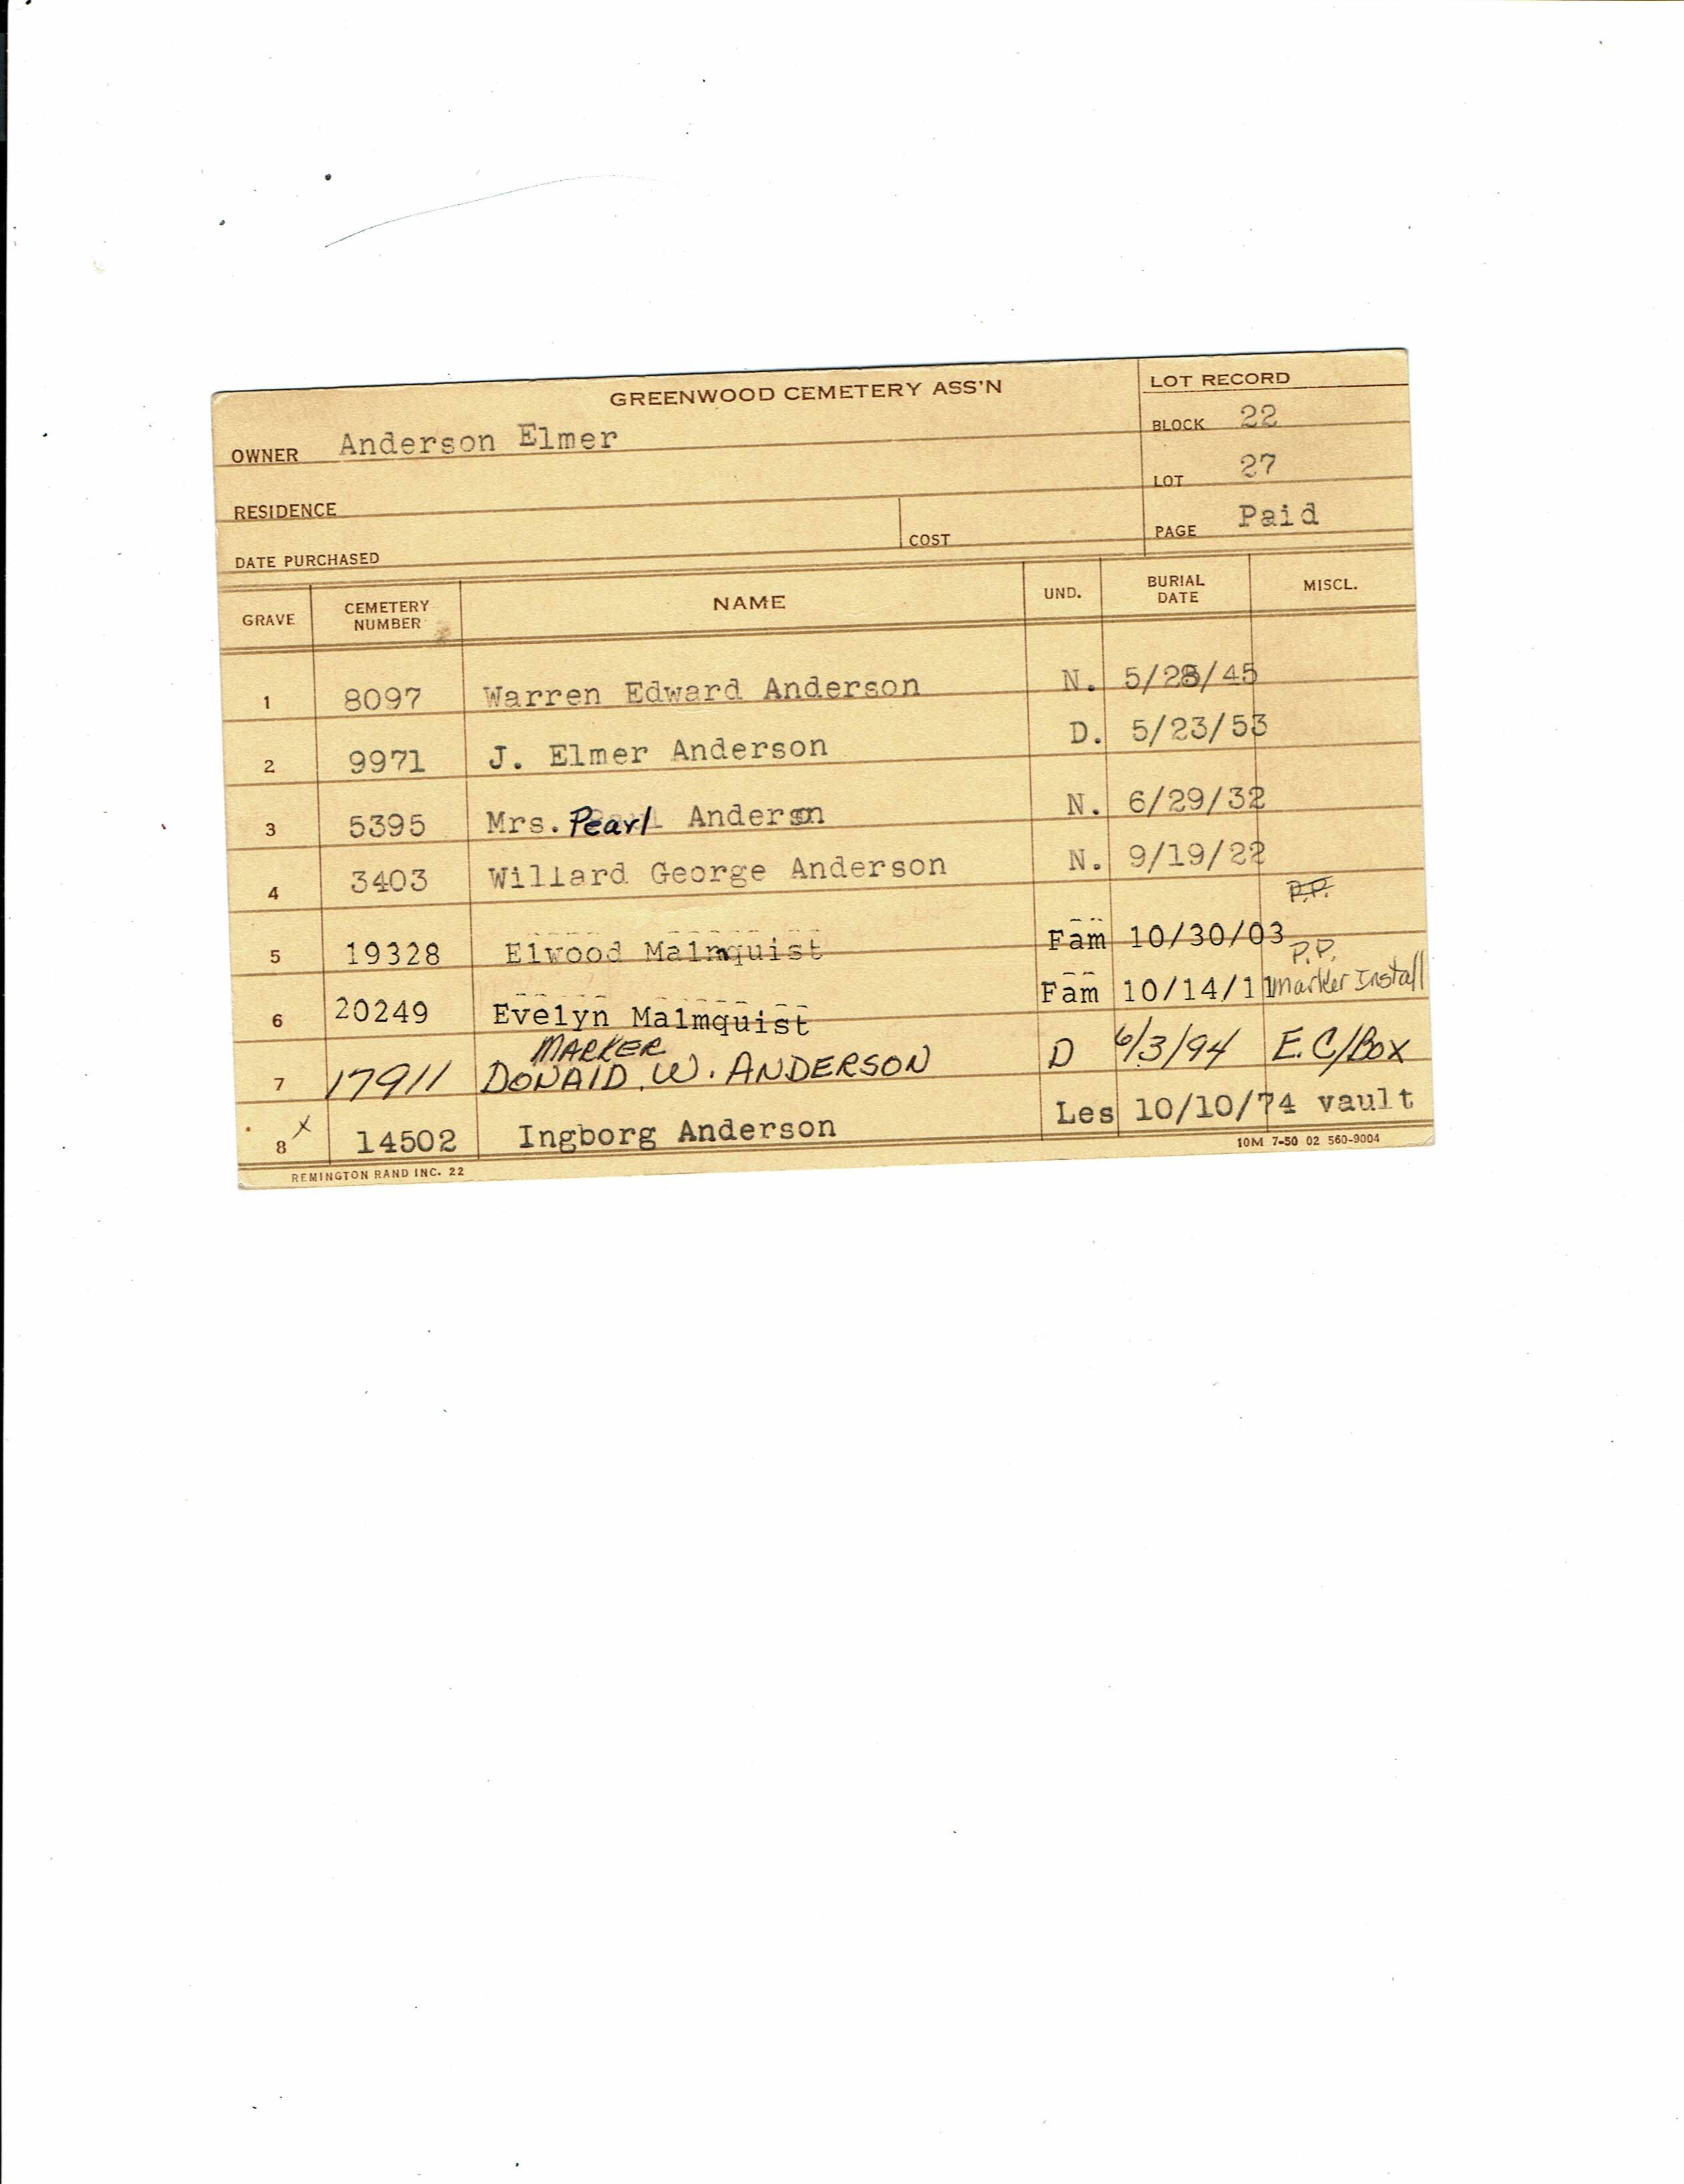 GREENWOOD CEMETERY ASS'N
LOT RECORD
OWNER Anderson Elmer
BLOCK 22
RESIDENCE
LOT 27
DATE PURCHASED
COST
PAGE Paid
GRAVE CEMETERY NUMBER NAME UND. BURIAL DATE MISCL.
1 8097 Warren Edward Anderson N. 5/28/45
2 9971 J. Elmer Anderson D. 5/23/53
3 5395 Mrs. Pearl Anderson N. 6/29/32
4 3403 Willard George Anderson N. 9/19/22
P.P.
5 19328 Elwood Malmquist Fam 10/30/03
P.P.
6 20249 Evelyn Malmquist Fam 10/14/11 marker Install
MARKER
7 17911 DONALD W. ANDERSON D 6/3/94 E.C/Box
8 x 14502 Ingborg Anderson Les 10/10/74 vault
REMINGTON RAND INC. 22
10M 7-50 02 560-9004